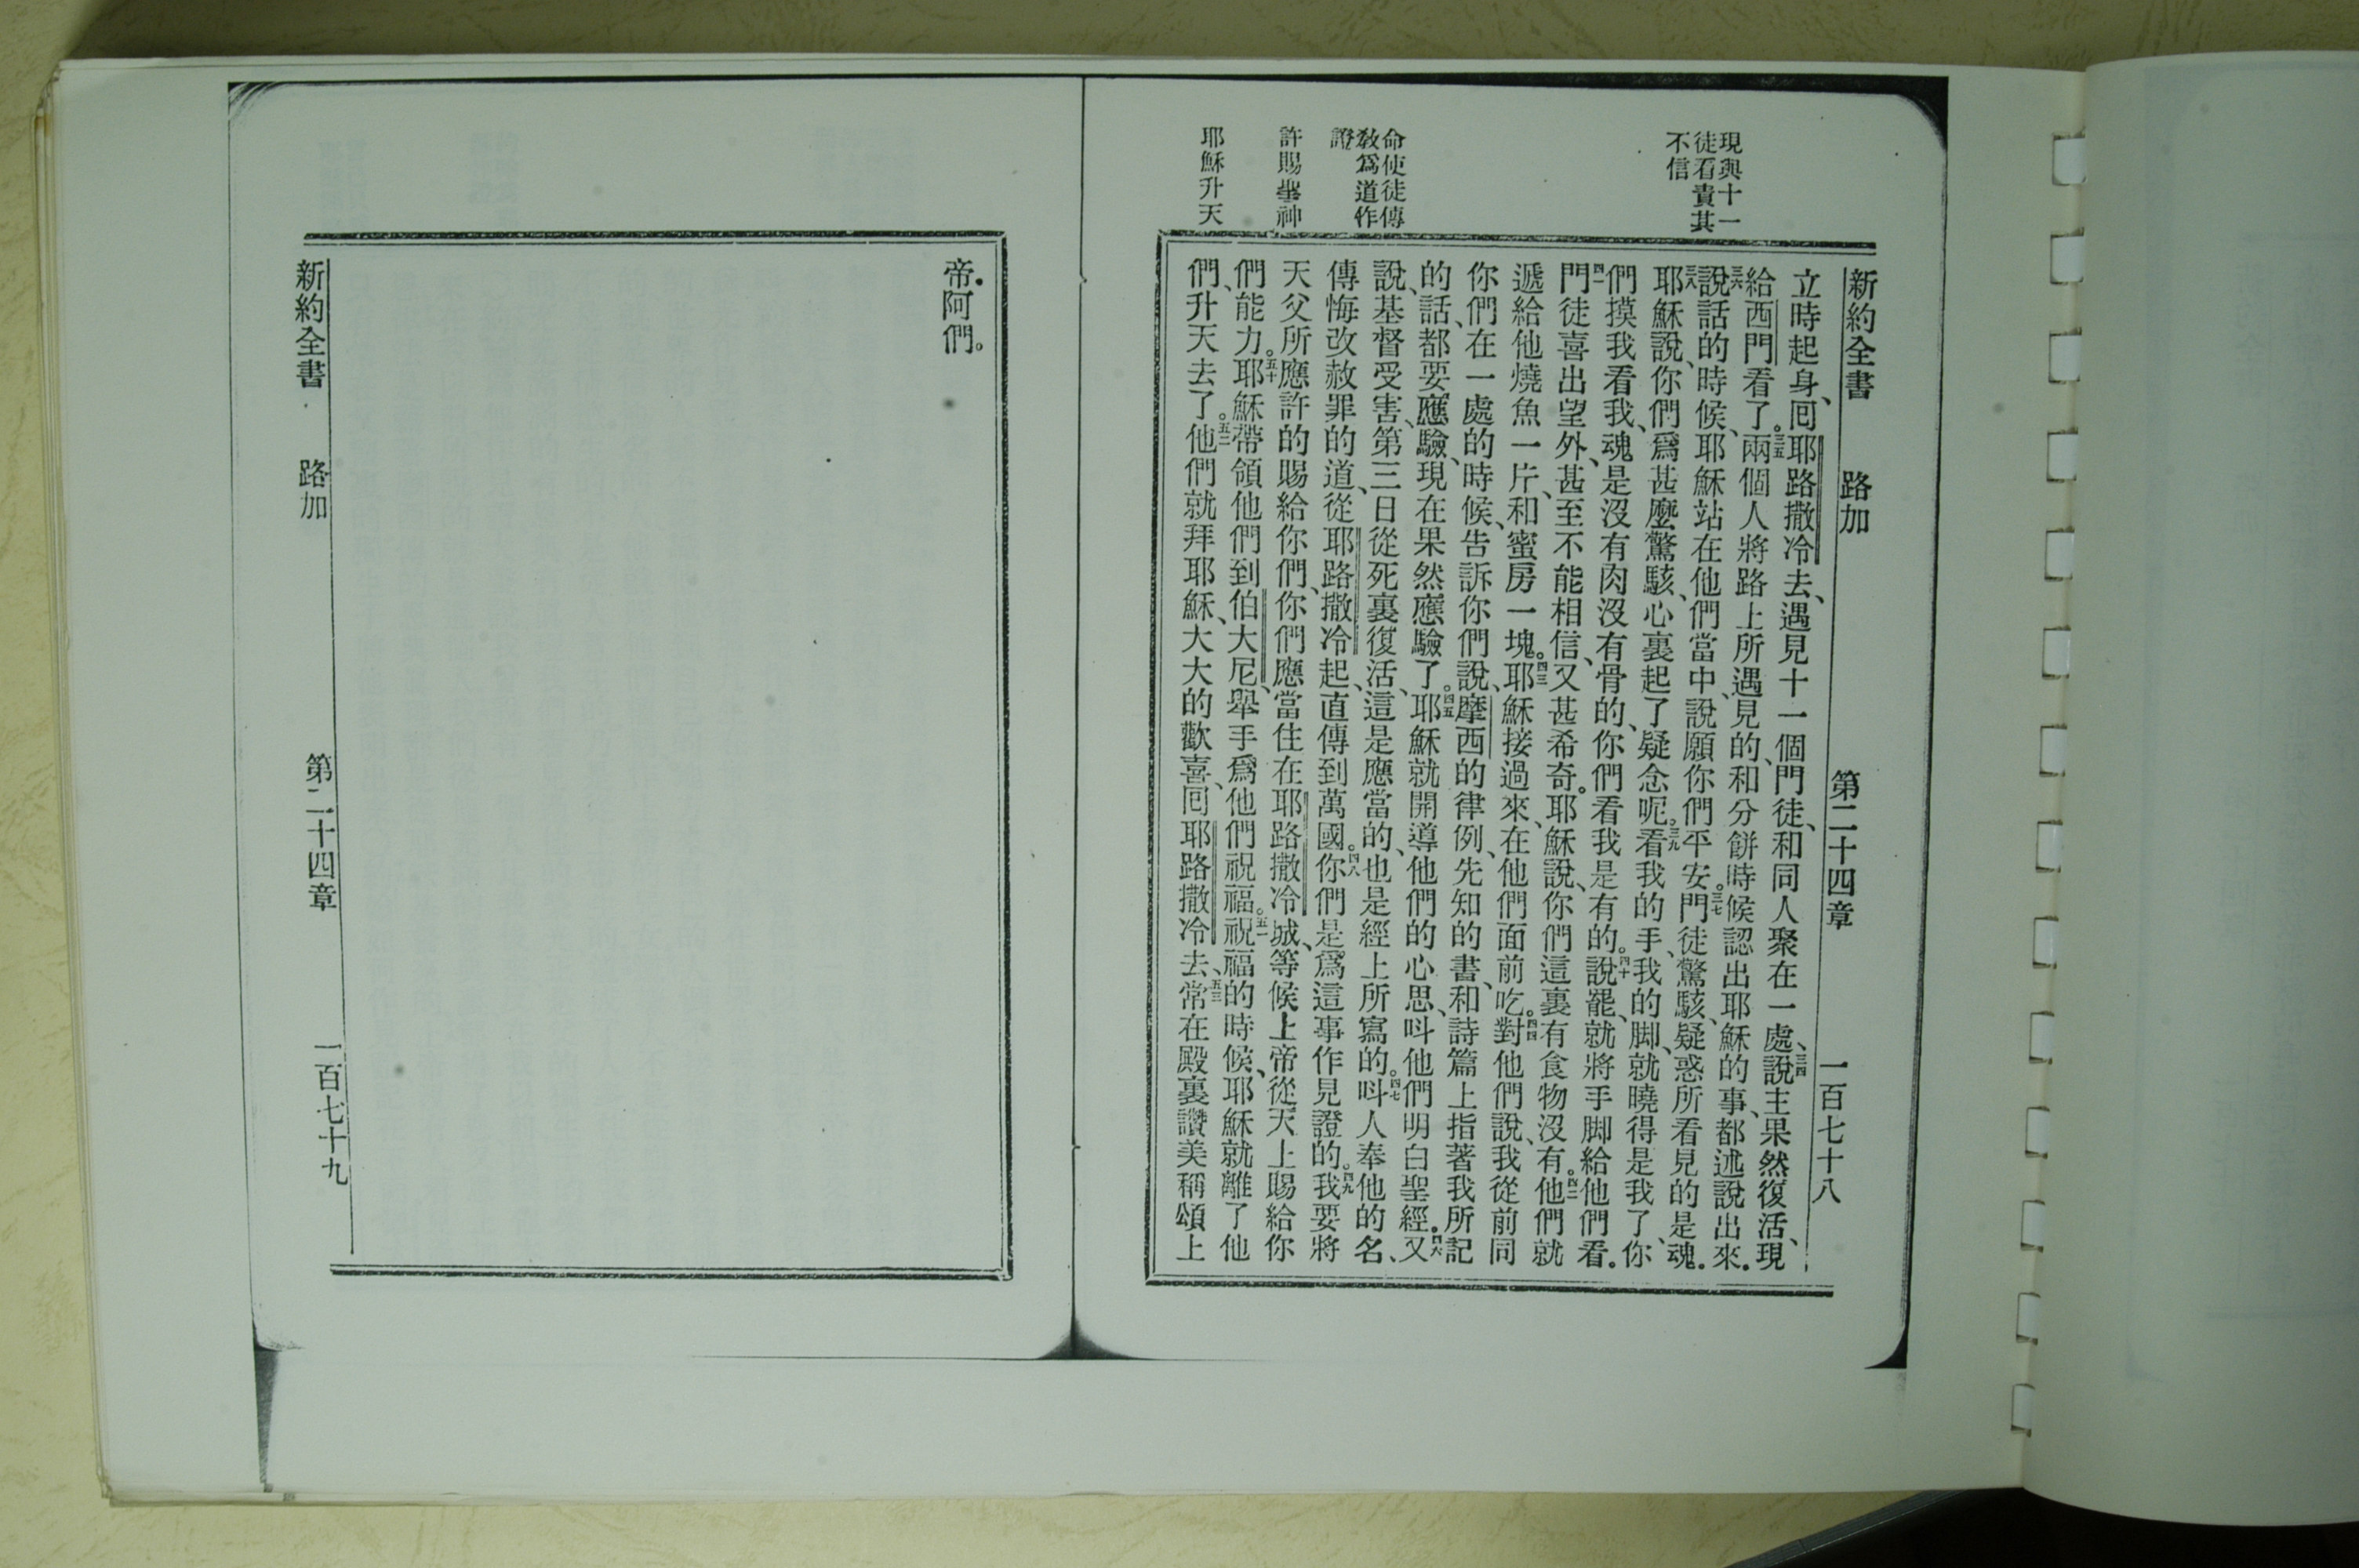 現與十一
徒看責其
不信
命使徒傳
敎爲道作
證
許賜聖神
耶穌升天
新約全書 路加 第二十四章 一百七十八
立時起身、囘耶路撒冷去、遇見十一個門徒、和同人聚在一處、三四說主果然復活、現
給西門看了。三五兩個人將路上所遇見的、和分餅時候認出耶穌的事、都述說出來。
三六說話的時候、耶穌站在他們當中、說願你們平安。三七門徒驚駭、疑惑所看見的是魂。
三八耶穌說、你們爲甚麼驚駭、心裏起了疑念呢。三九看我的手、我的脚、就曉得是我了、你
們摸我看我、魂是沒有肉沒有骨的、你們看我是有的。四十說罷、就將手脚給他們看。
四一門徒喜出望外、甚至不能相信、又甚希奇。耶穌說、你們這裏有食物沒有。四二他們就
遞給他燒魚一片、和蜜房一塊。四三耶穌接過來、在他們面前吃。四四對他們說、我從前同
你們在一處的時候、告訴你們說、摩西的律例、先知的書、和詩篇上指著我所記
的話、都要應驗、現在果然應驗了。四五耶穌就開導他們的心思、呌他們明白聖經。四六又
說、基督受害、第三日從死裏復活、這是應當的、也是經上所寫的。四七呌人奉他的名、
傳悔改赦罪的道、從耶路撒冷起、直傳到萬國。四八你們是爲這事作見證的。四九我要將
天父所應許的賜給你們、你們應當住在耶路撒冷城、等候上帝從天上賜給你
們能力。五十耶穌帶領他們到伯大尼、舉手爲他們祝福。五一祝福的時候、耶穌就離了他
們、升天去了。五二他們就拜耶穌、大大的歡喜、囘耶路撒冷去、五三常在殿裏讚美稱頌上
帝。阿們。
新約全書 路加 第二十四章 一百七十九